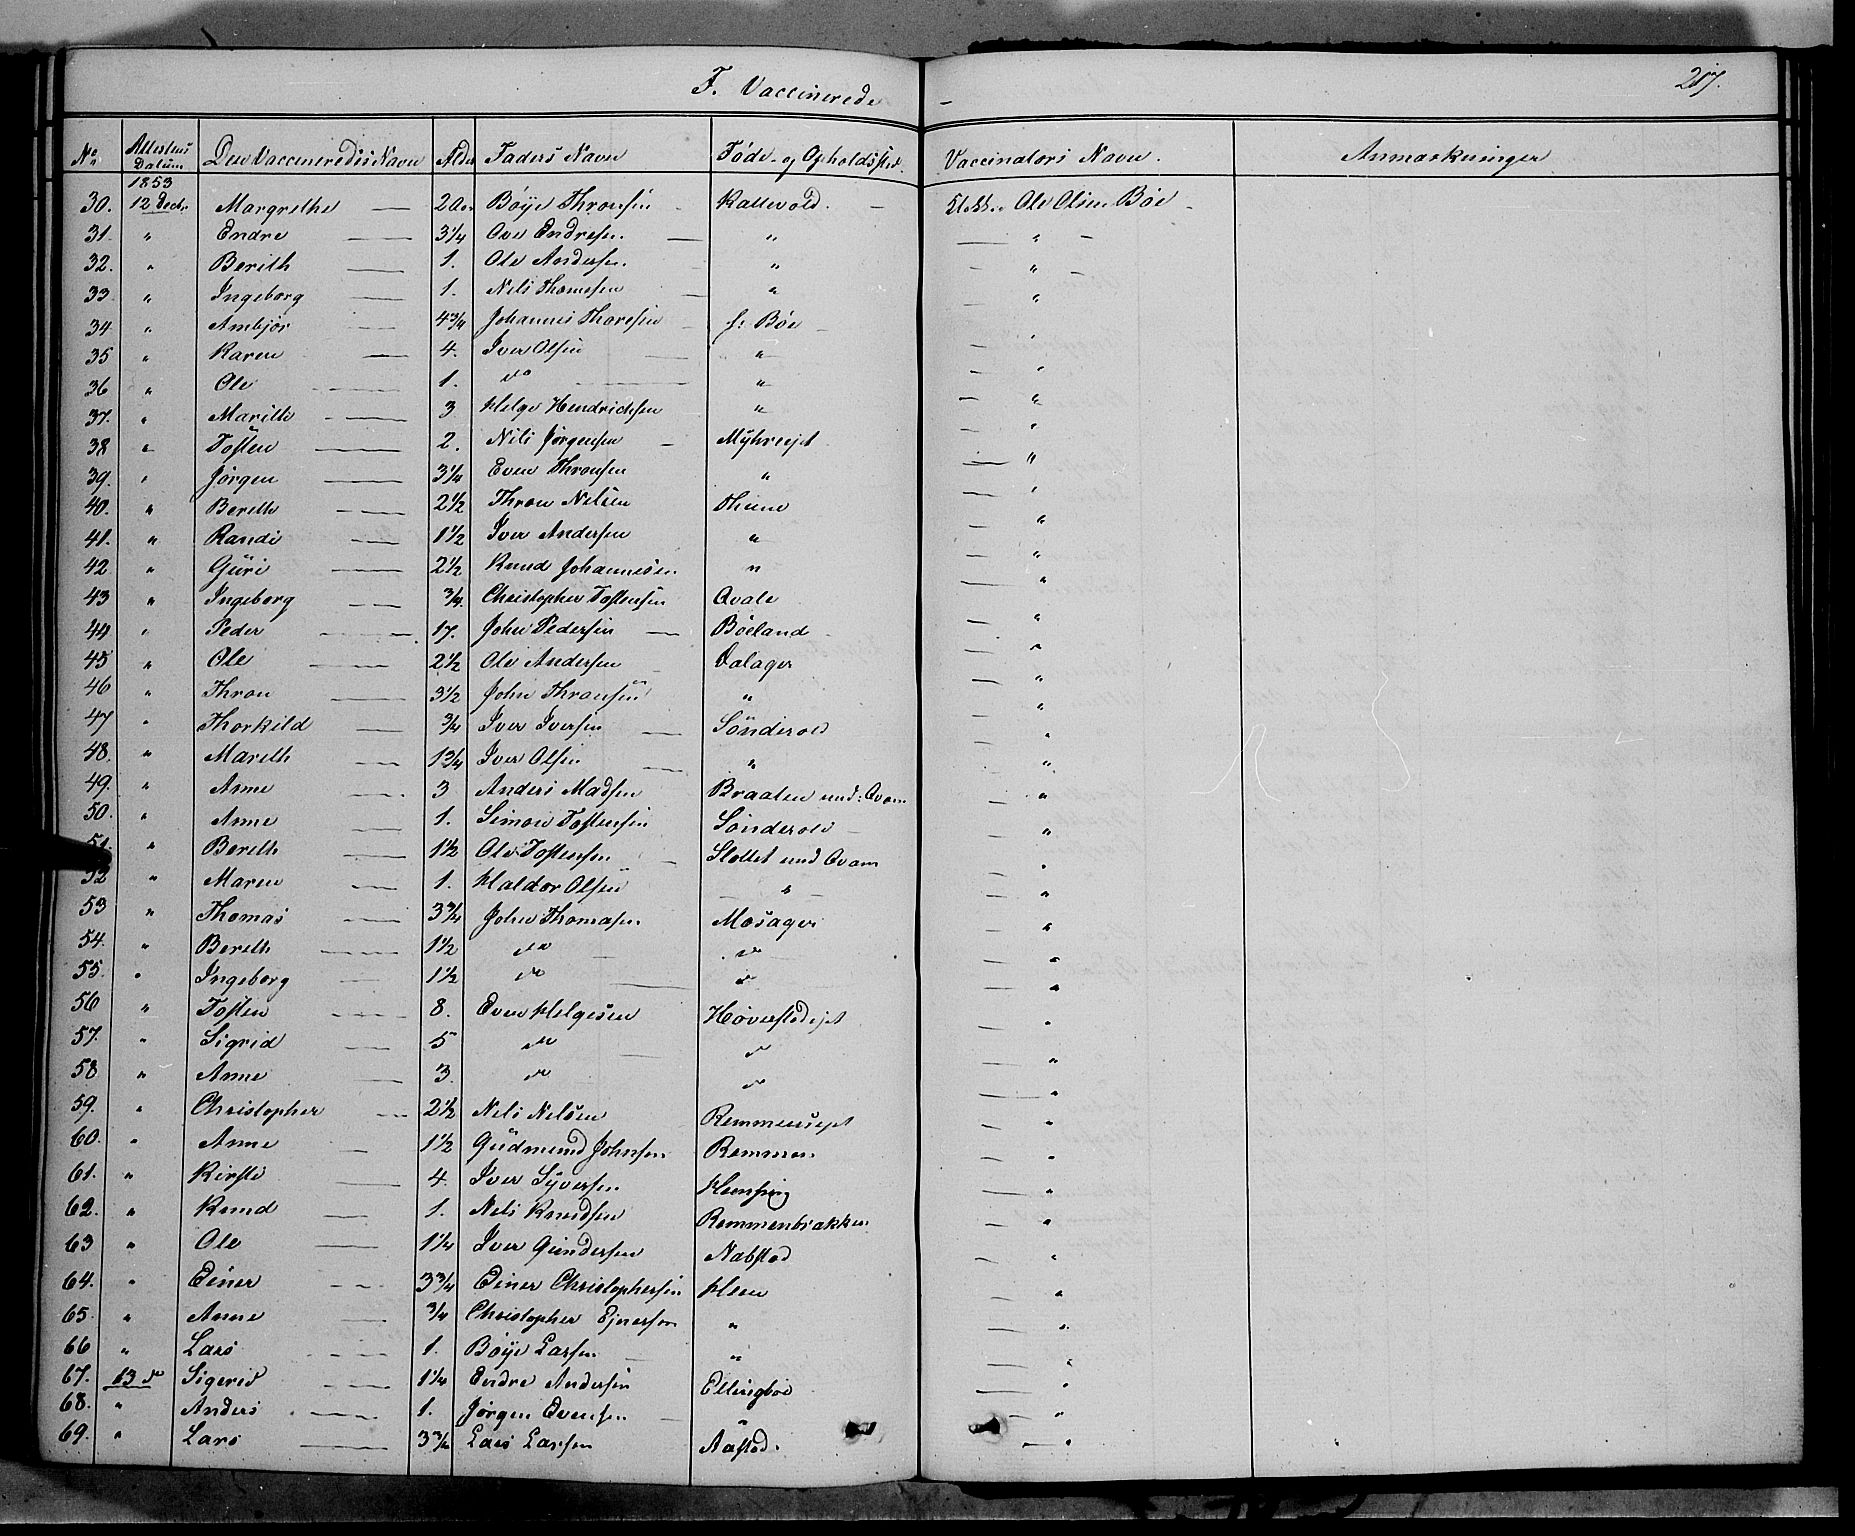 F. Vaccinerede - 217.
No. Attestens Datum Den Vaccineredes Navn Alder Faders Navn Føde- og Opholdssted. Vaccinators Navn. Anmærkninger
1853
30. 12 Decbr. Margrethe 2 Aar Bøye Thronsen Kattevold. Ole Olsen Bøe
31. " Endre 3 1/4 Ove Endresen. " "
32. " Berith 1. Ole Andersen. " "
33 " Ingeborg 1. Nils Thomesen " "
34 " Ambjør 4 3/4 Johannes Thoresen s: Bøe "
35 " Karen 4. Iver Olsen " "
36 " Ole 1. do " "
37. " Marith 3 Helge Hendrichsen " "
38 " Tosten 2. Nils Jørgensen Myhreejet "
39. " Jørgen 3 1/4 Even Thronsen " "
40. " Berith 2 1/2 Thron Nilsen Thune "
41. " Randi 1 1/2 Iver Andersen " "
42 " Guri 2 1/2 Knud Johannesen " "
43 " Ingeborg 3/4 Christopher Tostensen Qvale "
44 " Peder 17. John Pedersen Bøeland "
45 " Ole 2 1/2 Ole Andersen Dalager "
46 " Thron 3 1/2 John Thronsen " "
47 " Thorkild 3/4 Iver Iversen Sønderol "
48. " Marith 1 3/4 Iver Olsen " "
49. " Anne 3 Anders Madsen Braaten und: Qvam "
50. " Anne 1. Simon Tostensen Sønderol "
51. " Berith 1 1/2 Ole Tostensen Slottet und Qvam "
52 " Maren 1. Haldor Olsen " "
53 " Thomas 3 3/4 John Thomasen Mosager "
54. " Berith 1 1/2 do do "
55. " Ingeborg 1 1/2 do do "
56 " Tosten 8. Even Helgesen Høverstadejet "
57. " Sigrid 5 do do "
58 " Anne 3. do do "
59. " Christopher 2 1/2 Nils Nelsen Remmensejet "
60. " Anne 1 1/2 Gudmund Johnsen Remmen "
61. " Kirsti 4. Iver Syversen Hensing "
62. " Knud 1. Nels Knudsen Remmenbrakken "
63 " Ole 1 1/4 Iver Gundersen Nabstad "
64. " Einer 3 3/4 Einer Christophersen Heen "
65. " Anne 3/4 Christopher Ejnersen " "
66 " Lars 1. Bøye Larsen " "
67. 13 do Sigerid 1 1/4 Endre Andersen Ellingboe "
68. " Anders 1. Jørgen Evensen "
69. " Lars 3 3/4 Lars Larsen Aastad. "